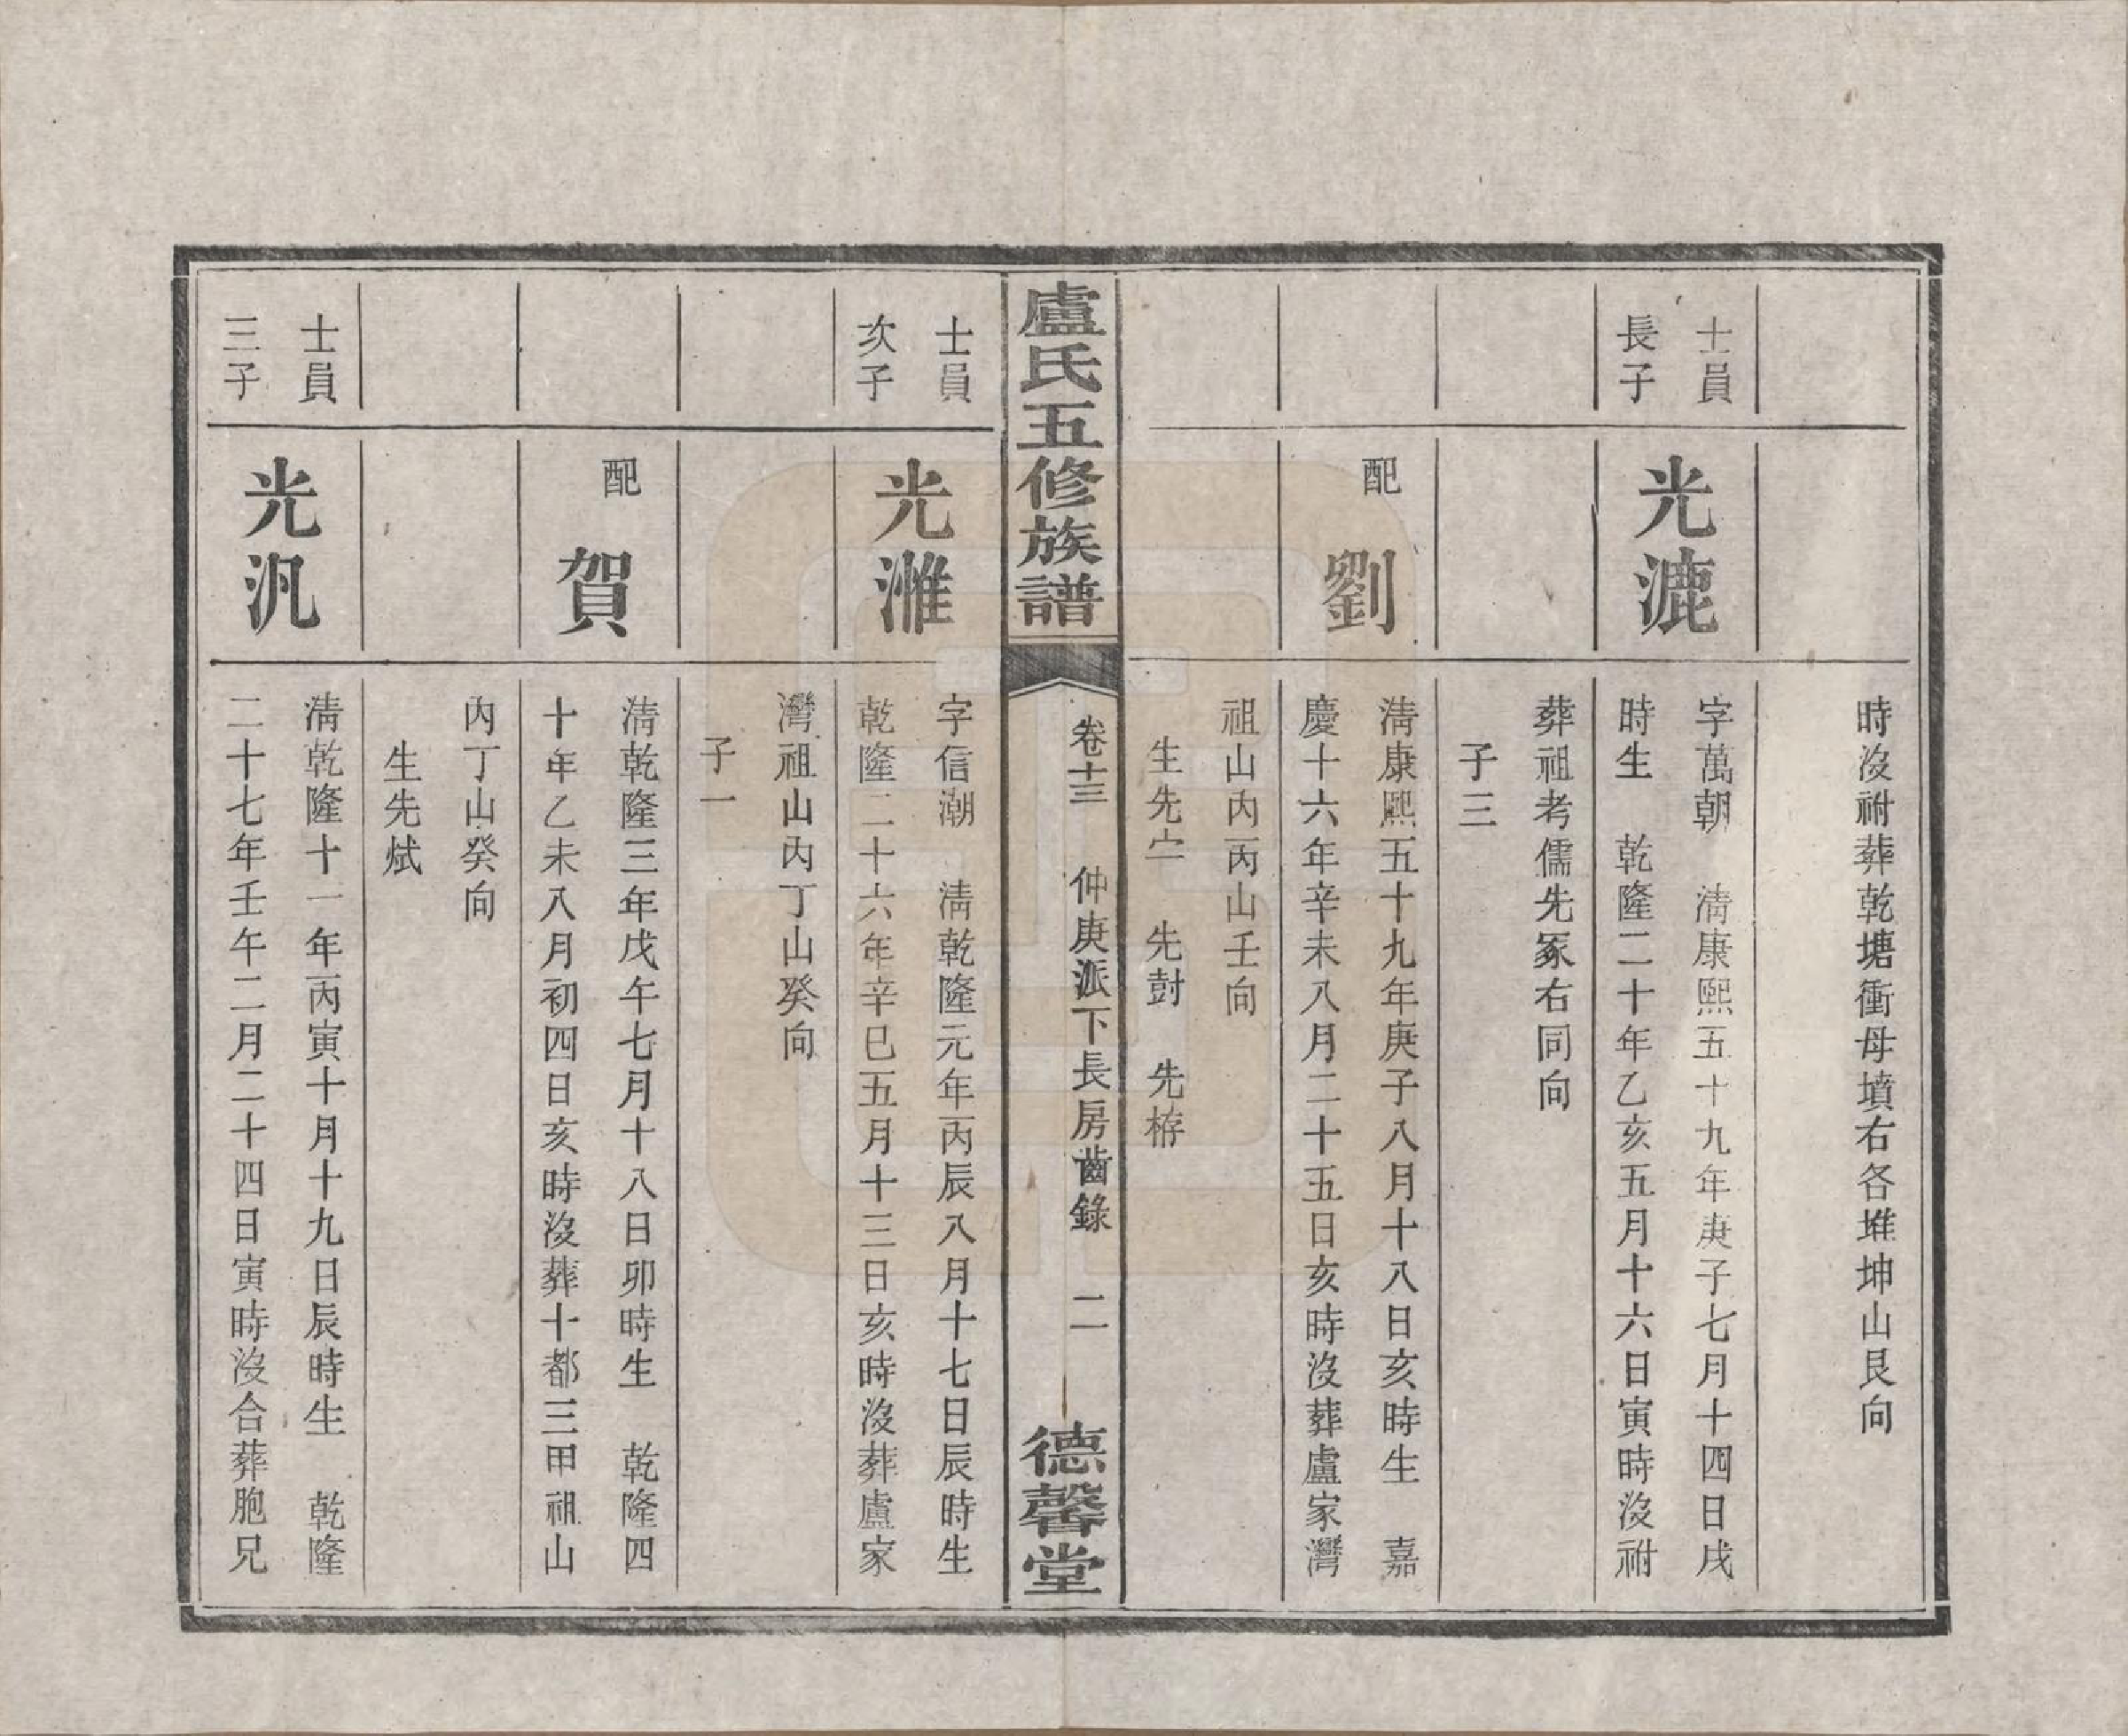 時沒祔葬乾塘衝母墳右各堆坤山艮向
士員
長子
光漉
字萬朝 清康熙五十九年庚子七月十四日戌
時生 乾隆二十年乙亥五月十六日寅時沒祔
葬祖考儒先冢右同向
子三
配
劉
清康熙五十九年庚子八月十八日亥時生 嘉
慶十六年辛未八月二十五日亥時沒葬盧家灣
祖山內丙山壬向
生先 先尌 先栫
盧氏五修族譜
卷十三 仲庚派下長房齒錄 二
德馨堂
士員
次子
光濰
字信潮 清乾隆元年丙辰八月十七日辰時生
乾隆二十六年辛巳五月十三日亥時沒葬盧家
灣祖山內丁山癸向
子一
配
賀
清乾隆三年戊午七月十八日卯時生 乾隆四
十年乙未八月初四日亥時沒葬十都三甲祖山
內丁山癸向
生先斌
士員
三子
光汎
清乾隆十一年丙寅十月十九日辰時生 乾隆
二十七年壬午二月二十四日寅時沒合葬胞兄